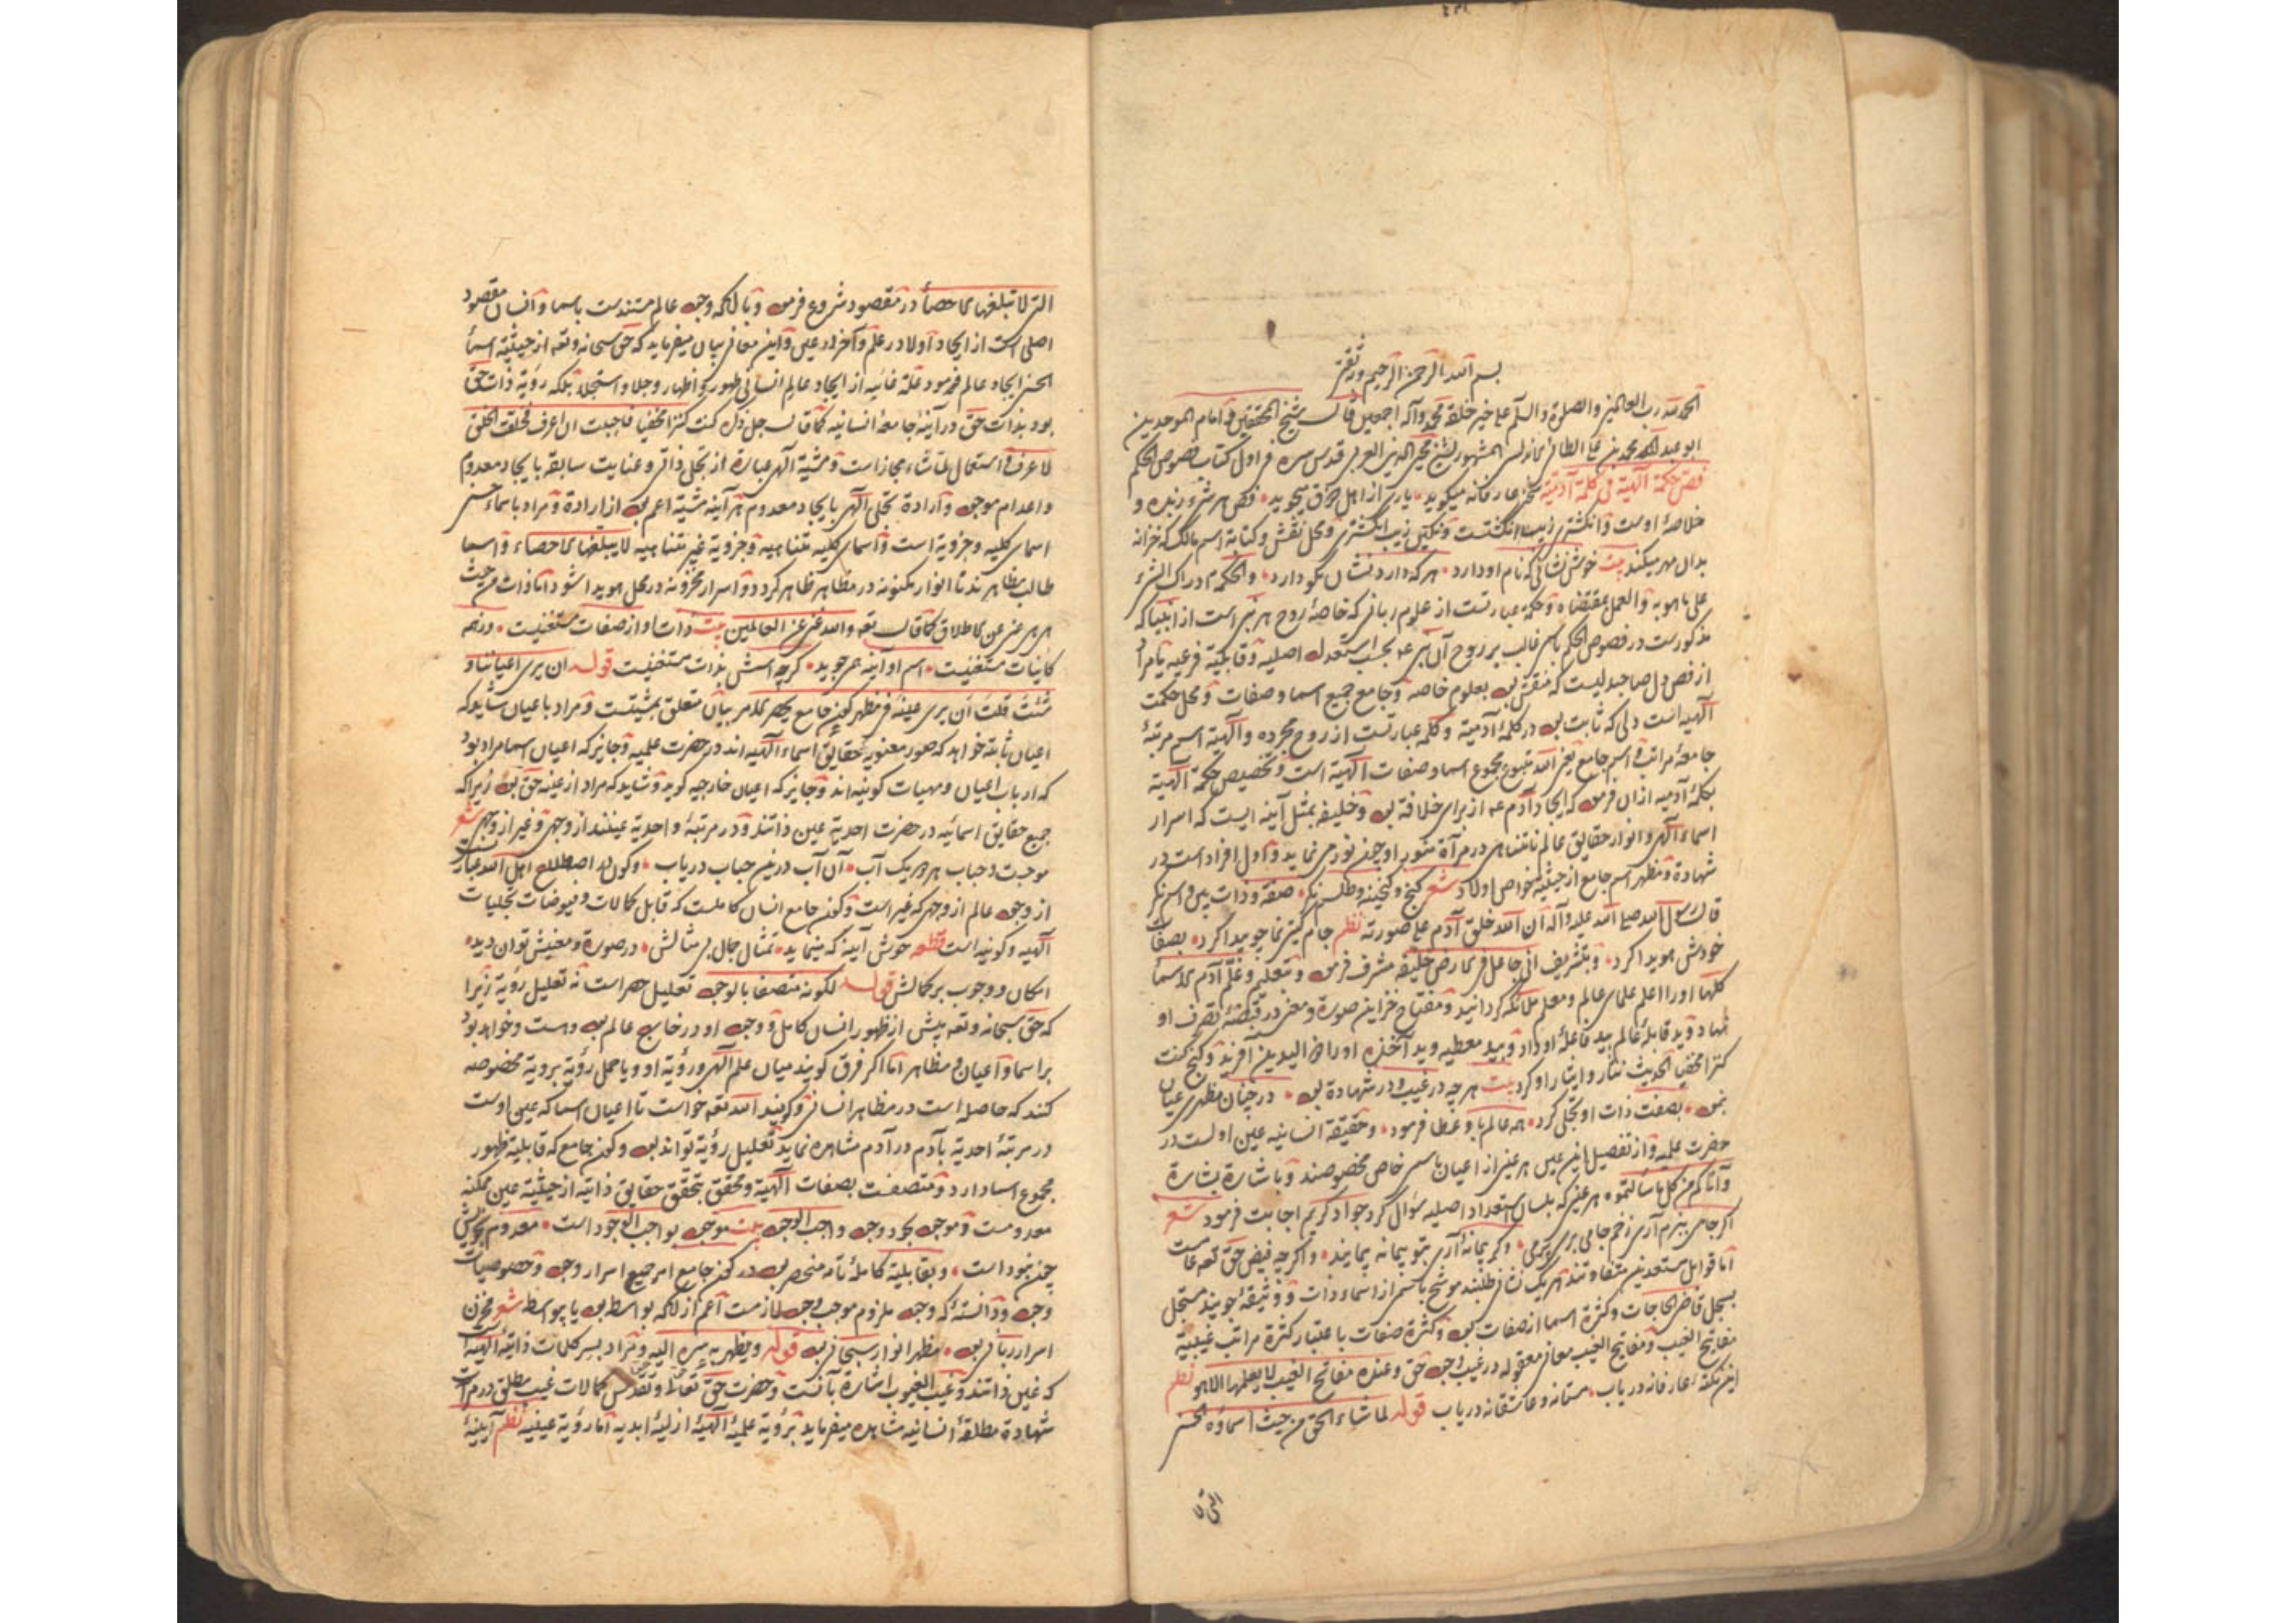 بسم الله الرحمن الرحیم وبه ثقتی
الحمد لله رب العالمین والصلوة والسلام علی خیر خلقه محمد وآله اجمعین قال شیخ المحققین امام الموحدین
ابو عبد الله محمد بن علی الطائی الاندلسی المشهور بشیخ محیی الدین العربی قدس سره در اول کتاب فصوص الحکم
فص حکمة الهیة فی کلمة آدمیة سخن عارفانه میکوید یاری از اهل ذوق میجوید فص هر شئ زبده و
خلاصهٔ اوست وانکشتری زینت انکشتست ونکین زیب انکشتری ومحل نقش وکتابة اسم مالک که خزانه
بدان مهر میکند بیت خوش نشانی که نام او دارد هر که دارد نشان نکو دارد والحکمة ادراک الشئ
علی ما هو به والعمل بمقتضاه وحکمة عبارتست از علوم ربانی که خاصهٔ روح هر نبی است از انبیا که
مذکورست در فصوص الحکم باسم غالب بر روح آن نبی عم بحسب استعداد اصلیه وقابلیة فرعیه یا مراد
از فص دل صاحبدلیست که منقش بود بعلوم خاصه وجامع جمیع اسما وصفات ومحل حکمت
الهیه است دلی که ثابت بود در کلمهٔ آدمیة وکلمه عبارتست از روح مجرده والهیة اسم مرتبهٔ
جامعهٔ مراتب اسم جامع یعنی الله متبوع مجموع اسما وصفات الهیة است وتخصیص حکمة الهیة
بکلمهٔ آدمیه از ان فرمود که ایجاد آدم عم از برای خلافة بود وخلیفه بمثل آینه ایست که اسرار
اسماء الهی وانوار حقایق عالم نامتناهی در مرآة منور او چون نور می نماید واول افراد است در
شهادة ومظهر اسم جامع از حیثیة خواص اولاد شعر کنج وکنجینه وطلسم نکر صفة وذات بین واسم نکر
قال رسول الله صلی الله علیه وآله ان الله خلق آدم علی صورته نظم جام کیتی نما چو پیدا کرد بصفات
خودش هویدا کرد وبتشریف انی جاعل فی الارض خلیفه مشرف فرمود وبتعلیم وعلم آدم الاسماء
کلها اورا اعلم علمای عالم ومعلم ملائکه کردانید ومفتاح خزاین صورة ومعنی در قبضهٔ تصرف او
نهاد وید قابلهٔ عالم بید فاعلهٔ او داد وبید معطیه وید آخذه اورا ذا الیدین آفرید وکنج کنت
کنزا مخفیا الحدیث نثار وایثار او کرد بیت هر چه در غیب ودر شهادة بود در چنان مظهری عیان
بنمود بصفت ذات او تجلی کرد همه عالم باو عطا فرمود وحقیقة انسانیه عین اولست در
حضرت علمیه واز تفصیل این عین هر عینی از اعیان باسمی خاص مخصوصند وباشارة بشارة
وآتاکم من کل ما سألتموه هر عینی که بلسان استعداد اصلیه سؤال کرد جواد کریم اجابت فرمود شعر
اکر جامی ببزم آری زخم جامی بری پر می وکر پیمانهٔ آری بتو پیمانه پیمایند واکرچه فیض حق تعه عامست
اما قوابل مستعدین متفاوتند هر یک نشانی طلبند موشح باسمی از اسماء ذات ووثیقهٔ جویند مسجل
بسجل قاضی الحاجات وکثرة اسما از صفات بود وکثرة صفات باعتبار کثرة مراتب غیبیة
مفاتیح الغیب ومفاتیح الغیب معانی معقوله در غیب وجود حق وعنده مفاتح الغیب لا یعلمها الا هو نظم
این نکتهٔ عارفانه دریاب مستانه وعاشقانه دریاب قوله لما شاء الحق من حیث اسماؤه الحسنی
التی لا
التی لا تبلغها الاحصاء در مقصود شروع فرمود وبآنکه وجود عالم مستندست باسما وانسان مقصود
اصلی است از ایجاد اولا در علم وآخرا در عین واین معانی بیان میفرماید که حق سبحانه وتعه از حیثیة اسماء
الحسنی ایجاد عالم فرمود علة غائیه از ایجاد عالم انسانی ظهور واظهار وجلا واستجلا بلکه رؤیة ذات حق
بود بذات حق در آینهٔ جامعهٔ انسانیه کما قال جل ذکره کنت کنزا مخفیا فاحببت ان اعرف فخلقت الخلق
لاعرف واستعمال لما شاء مجازاست ومشیة الهی عبارة از تجلی ذاتی وعنایت سابقه بایجاد معدوم
واعدام موجود وارادة تجلی الهی بایجاد معدوم هر آینه مشیة اعم بود از ارادة ومراد باسماء حسنی
اسمای کلیه وجزویة است واسمای کلیه متناهیه وجزویة غیر متناهیه لا یبلغها الاحصاء واسما
طالب مظاهرند تا انوار مکنونه در مظاهر ظاهر کردد واسرار مخزونه در محل هویدا شود اما ذات من حیث
هی هی غنی عن الاطلاق کما قال تعه والله غنی عن العالمین بیت ذات او از صفات مستغنیست وز همه
کاینات مستغنیست اسم او آینه همی جوید کرچه اسمش بذات مستغنیست قوله ان یری اعیانها و
شئت قلت ان یری عینه فی مظهر کون جامع یحصر الامر بیان متعلق مشیتست ومراد باعیان شاید که
اعیان ثابته خواهد که صور معنویه حقایق اسماء الهیه اند در حضرت علمیه وجایز که اعیان اسما مراد بود
که ارباب اعیان ومهیات کونیه اند وجایز که اعیان خارجیه کوید وشاید که مراد از عینه حق بود زیرا که
جمیع حقایق اسمائیه در حضرت احدیة عین ذاتند ودر مرتبهٔ واحدیة عینند از وجهی وغیر از وجهی شعر
موجست وحباب هر دو یک آب آن آب درین حباب دریاب وکون در اصطلاح اهل الله عبارتست
از وجود عالم از وجهی که غیر است وکون جامع انسان کاملست که قابل کمالات وفیوضات تجلیات
الهیه وکونیه است قطعه خوش آینهٔ که مینماید تمثال جمال بی مثالش در صورة ومعنیش توان دید
امکان ووجوب بر کمالش قوله لکونه متصفا بالوجود تعلیل حصر است نه تعلیل رؤیة زیرا
که حق سبحانه وتعه پیش از ظهور انسان کامل ووجود او در خارج عالم بود وهست وخواهد بود
بر اسما واعیان ومظاهر اما اکر فرق کویند میان علم الهی ورؤیة او ویا حمل رؤیة برویة مخصوصه
کنند که حاصله است در مظاهر انسانی وکویند الله تعه خواست تا اعیان اسما که عین اوست
در مرتبهٔ احدیة بآدم در آدم مشاهده نماید تعلیل رؤیة تواند بود وکون جامع که قابلیة ظهور
مجموع اسما دارد ومتصفست بصفات الهیة ومحقق بتحقق حقایق ذاتیه از حیثیة عین ممکنه
معدومست وموجود بجود وجود واجب الوجود بیت موجود بواجب الوجود است معدوم بخویش
چون نبود است وبقابلیة کاملهٔ تامه منحصر بود در کون جامع امر جمیع اسرار وجود وخصوصیات
وجود ودانستهٔ که وجود ملزوم موجب وجود لازمست اعم از آنکه بواسطه بود یا بی واسطه شعر مخزن
اسرار ربانی بود مظهر انوار سبحانی بود قوله ویظهر به سره الیه ومراد بسر کلمات ذاتیهٔ الهیه است
که عین ذاتند وغیب الغیوب اشارة بآنست وحضرت حق تعالی وتقدس کمالات غیب مطلق در مرآت
شهادة مطلقهٔ انسانیه مشاهده میفرماید برؤیة علمیهٔ الهیهٔ ازلیهٔ ابدیه اما رؤیة عینیه نظم آیینهٔ